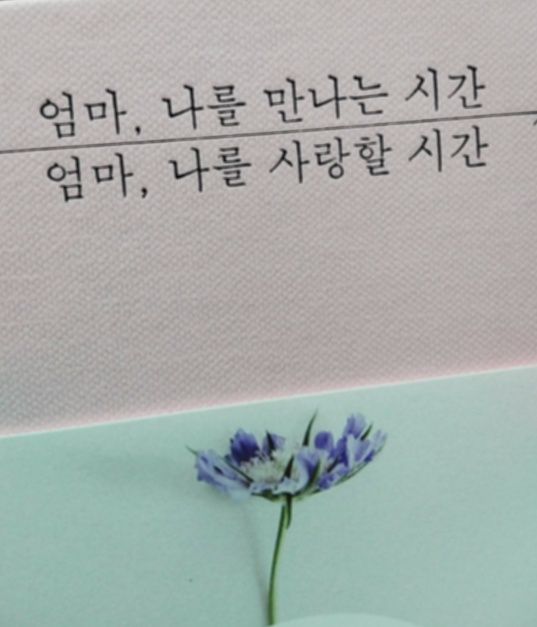 엄마, 나를 만나는 시간
엄마, 나를 사랑할 시간